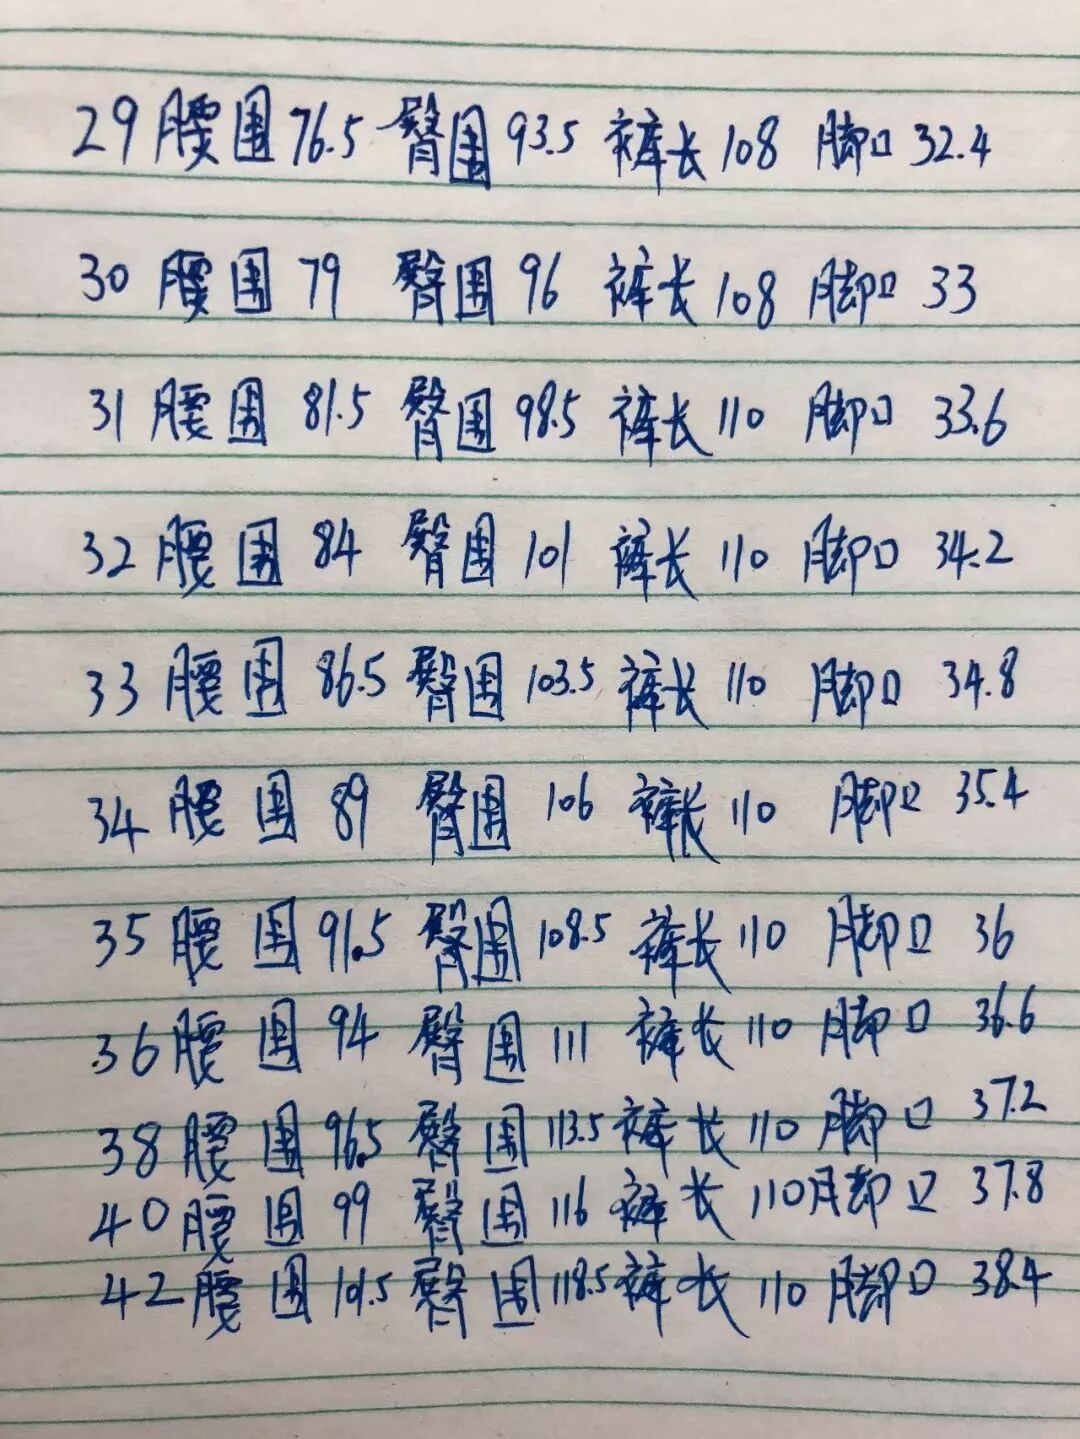 29 腰围 76.5 臀围 93.5 裤长 108 脚口 32.4
30 腰围 79 臀围 96 裤长 108 脚口 33
31 腰围 81.5 臀围 98.5 裤长 110 脚口 33.6
32 腰围 84 臀围 101 裤长 110 脚口 34.2
33 腰围 86.5 臀围 103.5 裤长 110 脚口 34.8
34 腰围 89 臀围 106 裤长 110 脚口 35.4
35 腰围 91.5 臀围 108.5 裤长 110 脚口 36
36 腰围 94 臀围 111 裤长 110 脚口 36.6
38 腰围 96.5 臀围 113.5 裤长 110 脚口 37.2
40 腰围 99 臀围 116 裤长 110 脚口 37.8
42 腰围 101.5 臀围 118.5 裤长 110 脚口 38.4